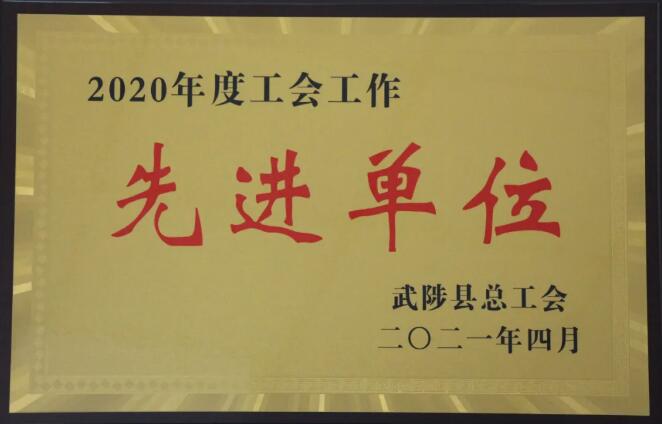 2020年度工会工作
先进单位
武陟县总工会
二〇二一年四月